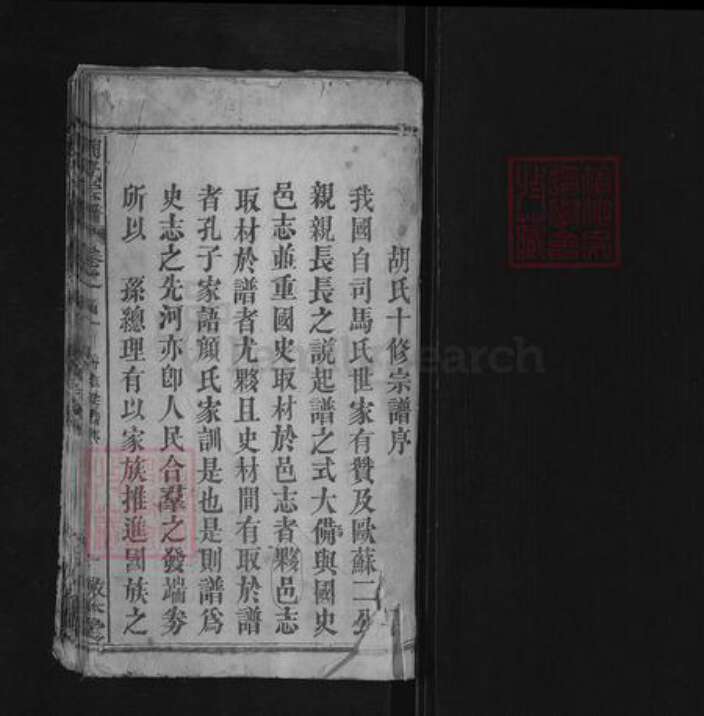 胡氏十修宗譜序
我國自司馬氏世家有贊及歐蘇二公
親親長長之說起譜之式大備與國史
邑志並重國史取材於邑志者夥邑志
取材於譜者尤夥且史材間有取於譜
者孔子家語顏氏家訓是也是則譜爲
史志之先河亦卽人民合羣之發端劵
所以 孫總理有以家族推進國族之